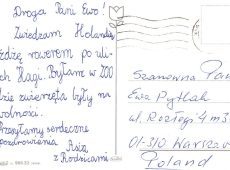 Droga Pani Ewo!
Zwiedzam Holandię
żdżę rowerem po uli-
ch Hagi. Byłam w ZOO
dzie zwierzęta były na
wolności.
Przesyłamy serdeczne
pozdrowienia Asia
z Rodzicami
Szanowna Pani
Ewa Pytlak
ul. Rozłogi 4 m 3
01-310 Warszawa
Poland